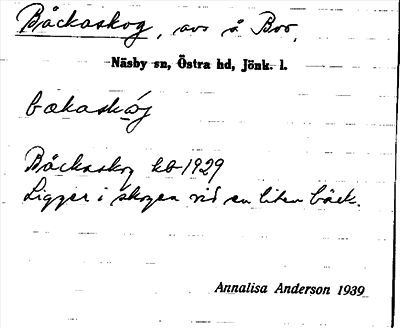 Bäckaskog, avs å Boo,
Näsby sn, Östra hd, Jönk. l.
bækaskóg
Bäckaskog kb 1929
Ligger i skogen vid en liten bäck.
Annalisa Anderson 1939